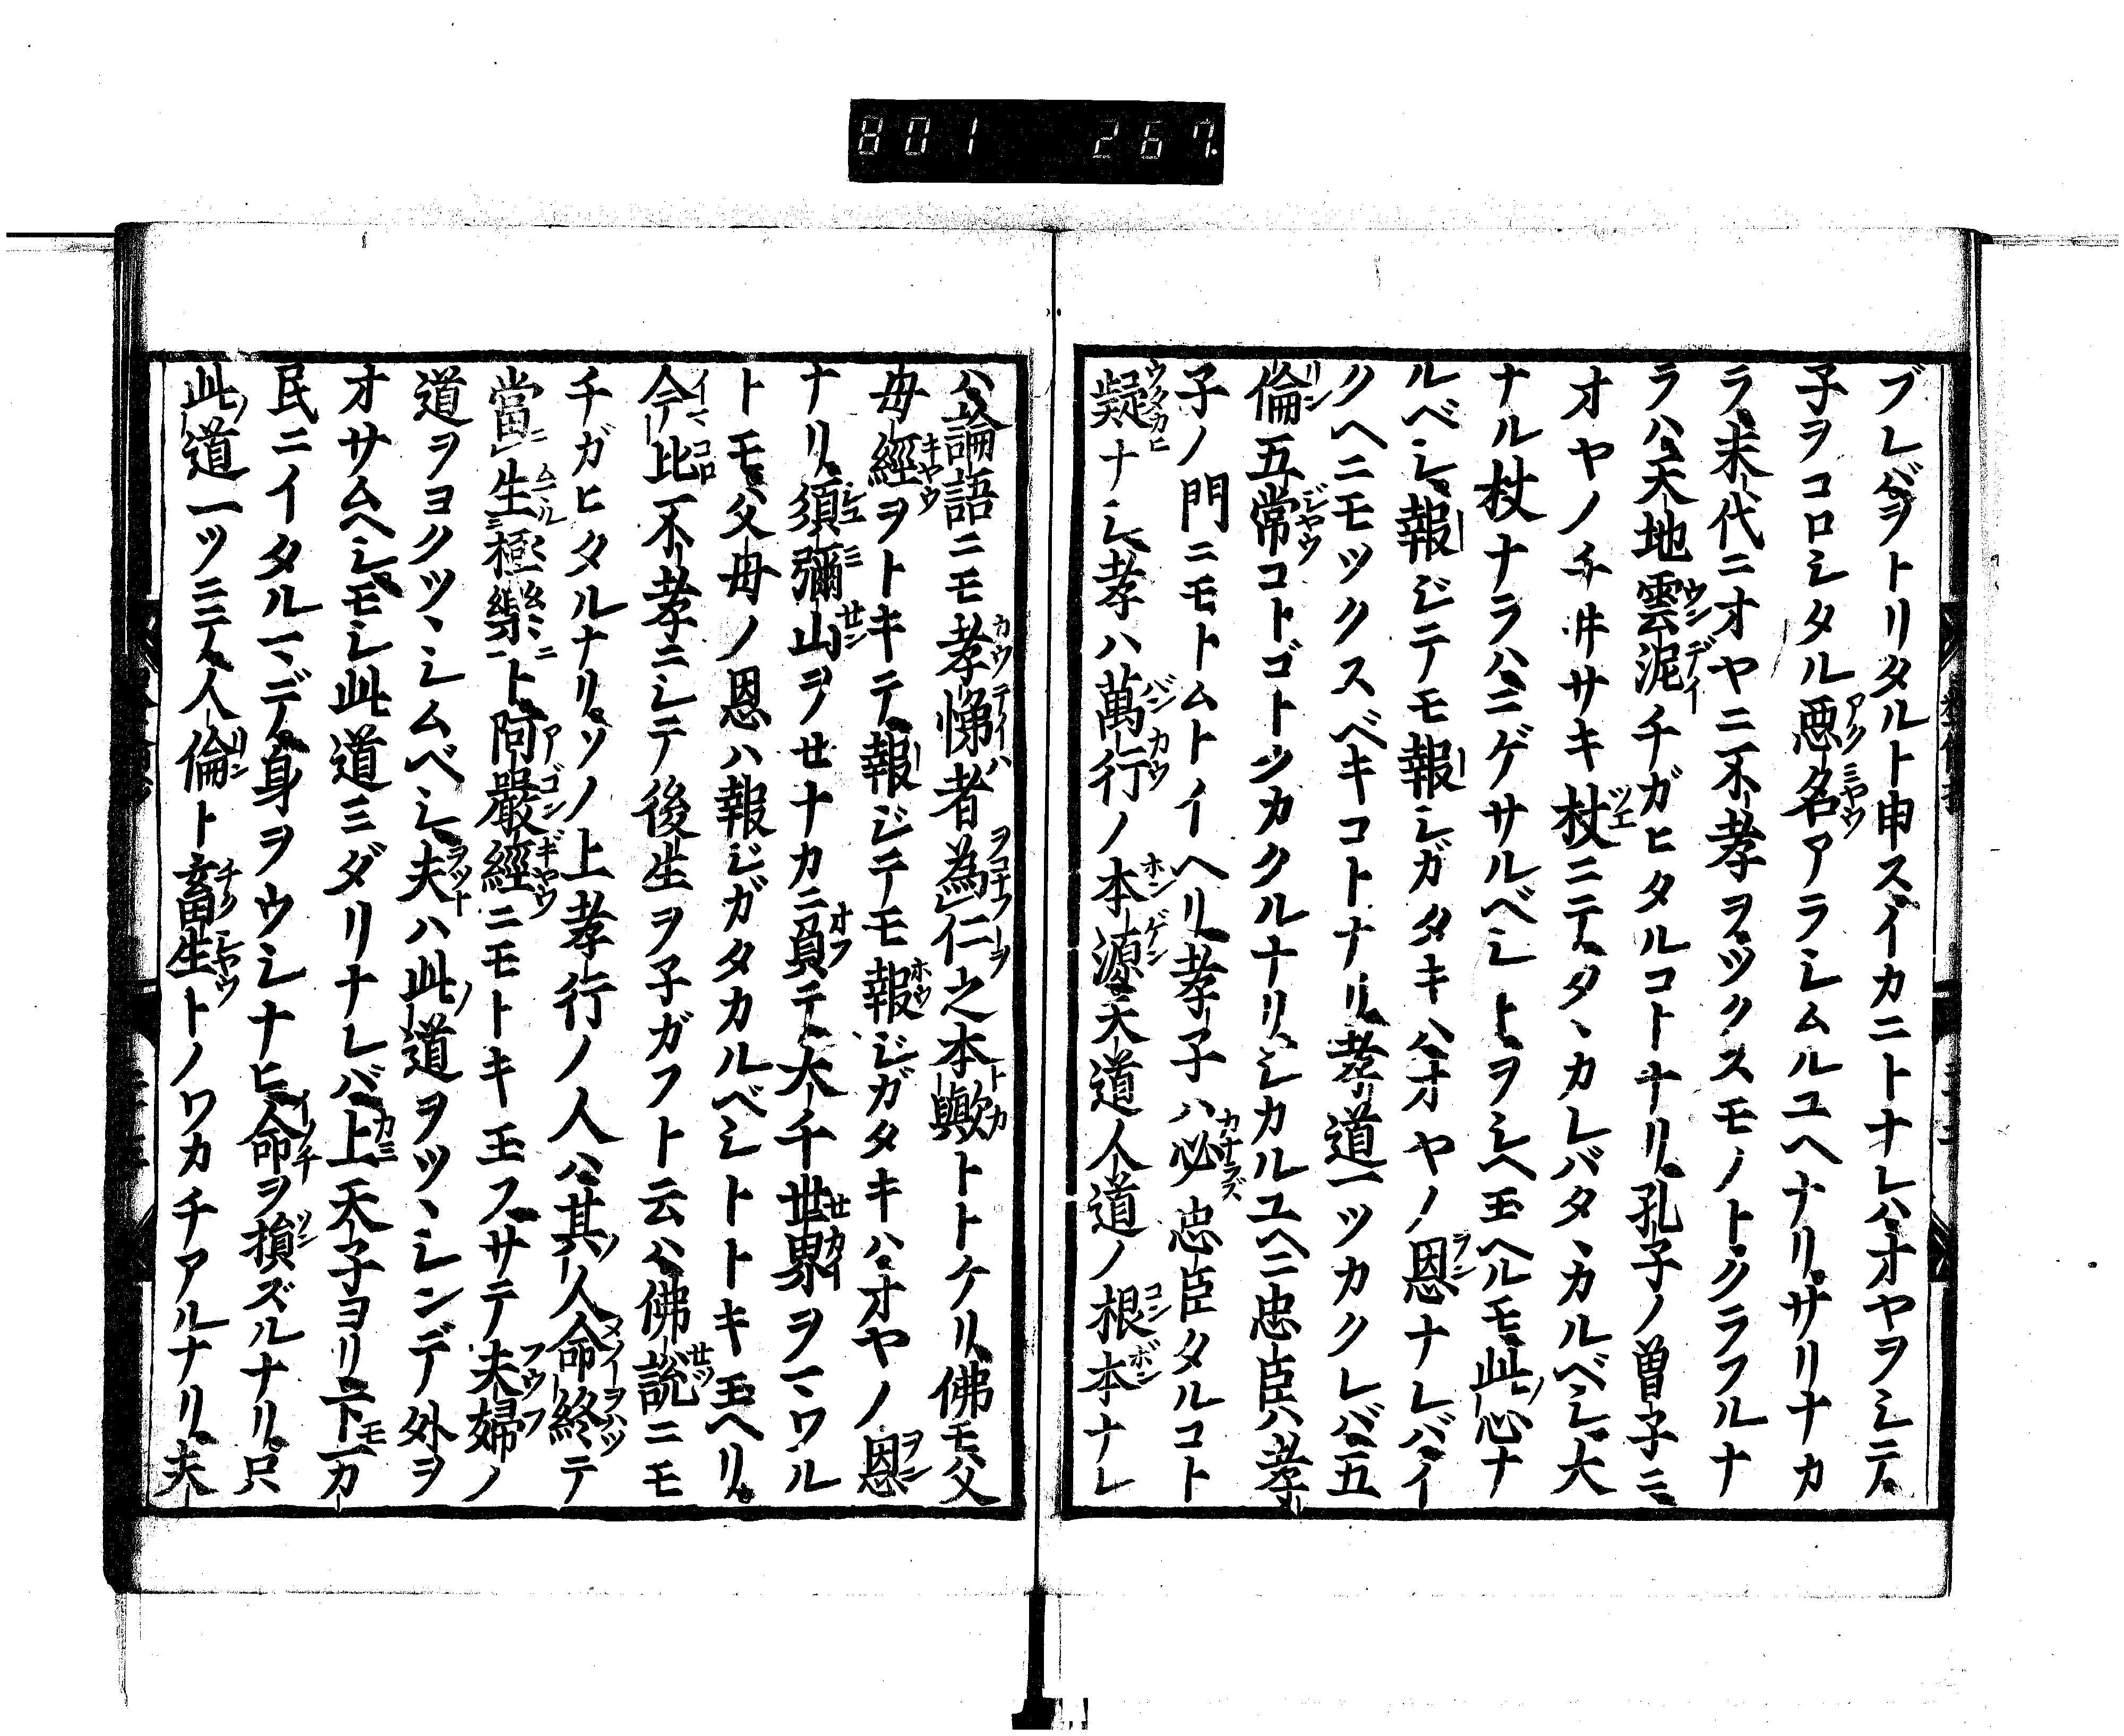 801 267
ブレバヲトリタルト申ス、イカニトナレハ、オヤヲシテ、
子ヲコロシタル悪名アラシムルユヘナリ、サリナカ
ラ、末代ニオヤニ不孝ヲツクスモノトクラフルナ
ラハ、天地雲泥チガヒタルコトナリ、孔子ノ曽子ニ、
オヤノチヰサキ杖ニテ、タヽカレバタヽカルベシ、大
ナル杖ナラハ、ニゲサルベシトヲシヘ玉ヘルモ、此心ナ
ルベシ、報ジテモ報シガタキハ、オヤノ恩ナレバ、イ
クヘニモツクスベキコトナリ、孝道一ツカクレバ、五
倫五常コトゴトシカクルナリ、シカルユヘニ忠臣ハ孝
子ノ門ニモトムトイヘリ、孝子ハ必忠臣タルコト
疑ナシ、孝ハ萬行ノ本源、天道人道ノ根本ナレ
ハ、論語ニモ孝悌者為仁之本歟トトケリ、佛モ父
毋經ヲトキテ、報ジテモ報ジガタキハ、オヤノ恩
ナリ、須彌山ヲセナカニ負テ、大千世界ヲマワル
トモ、父毋ノ恩ハ報ジガタカルベシトトキ玉ヘリ、
今比不孝ニシテ後生ヲ子ガフト云ハ、佛説ニモ
チガヒタルナリ、ソノ上孝行ノ人ハ、其人命終テ
當生極樂ト、阿嚴經ニモトキ玉フ、サテ夫婦ノ
道ヲヨクツヽシムベシ、夫ハ此道ヲツヽシンデ外ヲ
オサムヘシ、モシ此道ミダリナレバ、上天子ヨリ、下万
民ニイタルマデ、身ヲウシナヒ、命ヲ損ズルナリ、只
此道一ツニテ、人倫ト畜生トノワカチアルナリ、夫